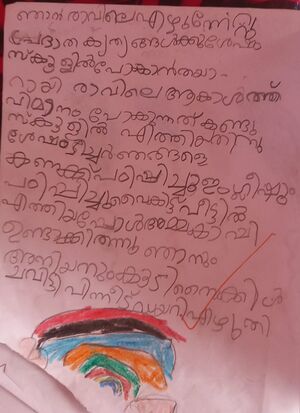 ഞാൻ രാവിലെ എഴുന്നേറ്റു
പ്രഭാത കൃത്യങ്ങൾക്കു ശേഷം
സ്കൂളിൽ പോകാൻ തയാ-
റായി രാവിലെ ആകാശത്ത്
വിമാനം പോകുന്നത് കണ്ടു
സ്കൂളിൽ എത്തിയതിനു
ശേഷം ടീച്ചർ ഞങ്ങളെ
കണക്ക് പഠിപ്പിച്ചു ഇംഗ്ലീഷും
പഠിപ്പിച്ചു വൈകിട്ട് വീട്ടിൽ
എത്തിയപ്പോൾ അമ്മ കാപ്പി
ഉണ്ടാക്കി തന്നു ഞാനും
അനിയനും കൂടി സൈക്കിൾ
ചവിട്ടി പിന്നീട് ഡയറി എഴുതി